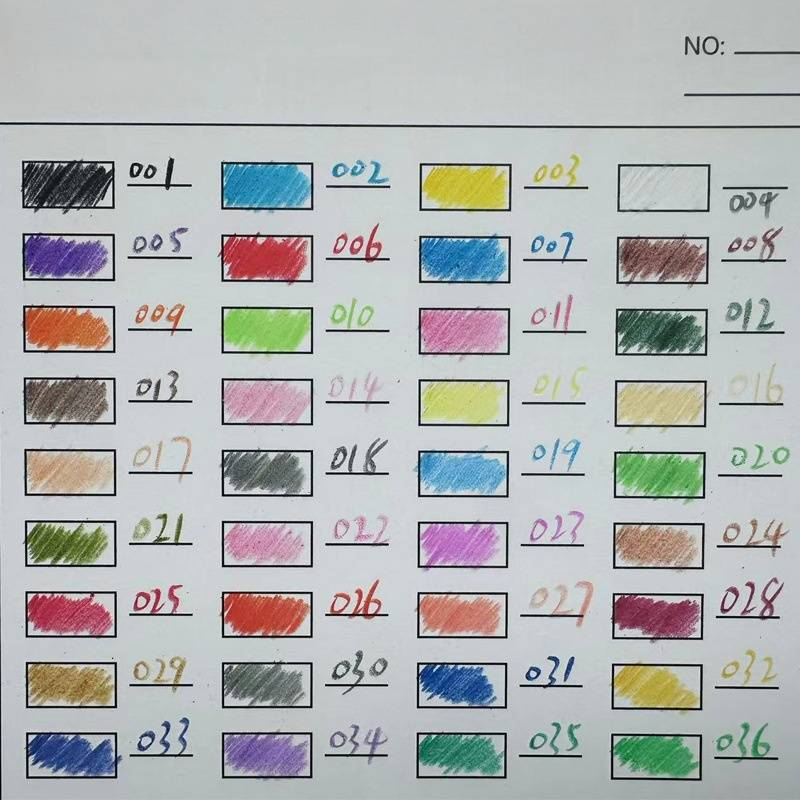 NO:
001 002 003 004
005 006 007 008
009 010 011 012
013 014 015 016
017 018 019 020
021 022 023 024
025 026 027 028
029 030 031 032
033 034 035 036